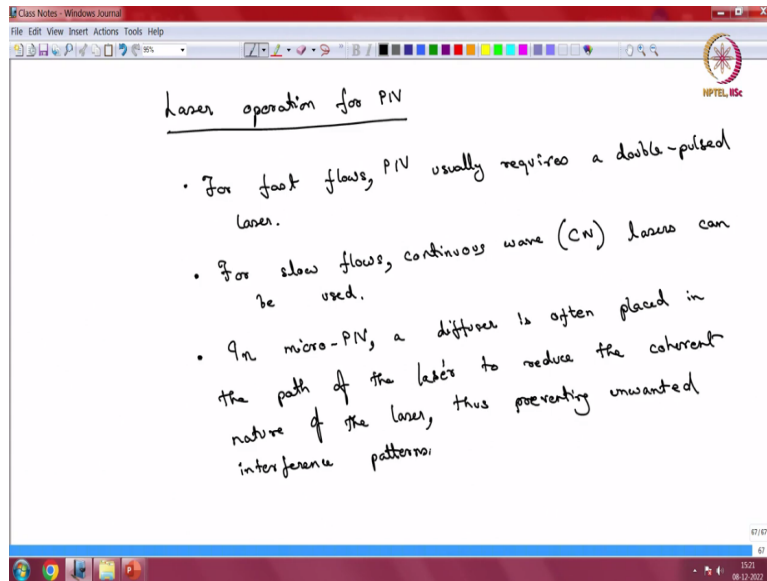 Class Notes - Windows Journal
File Edit View Insert Actions Tools Help
95%
B I
NPTEL, IISc
Laser operation for PIV
• For fast flows, PIV usually requires a double-pulsed
laser.
• For slow flows, continuous wave (CW) lasers can
be used.
• In micro-PIV, a diffuser is often placed in
the path of the laser to reduce the coherent
nature of the laser, thus preventing unwanted
interference patterns.
67/67
67
15:21
08-12-2022